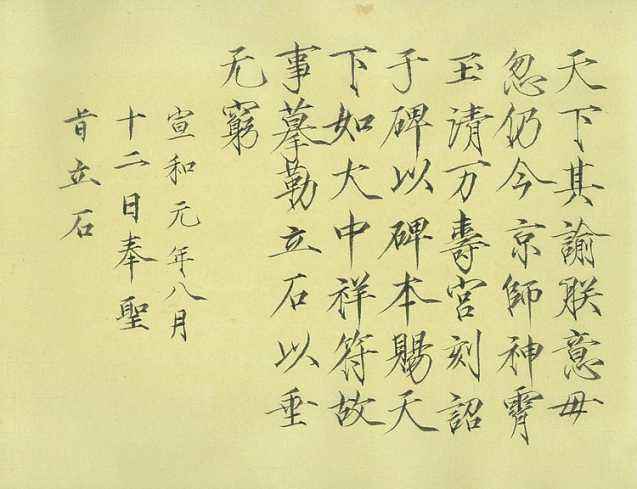 天下其諭朕意毋
忽仍令京師神霄
玉清万壽宮刻詔
于碑以碑本賜天
下如大中祥符故
事摹勒立石以垂
无窮
宣和元年八月
十二日奉聖
旨立石